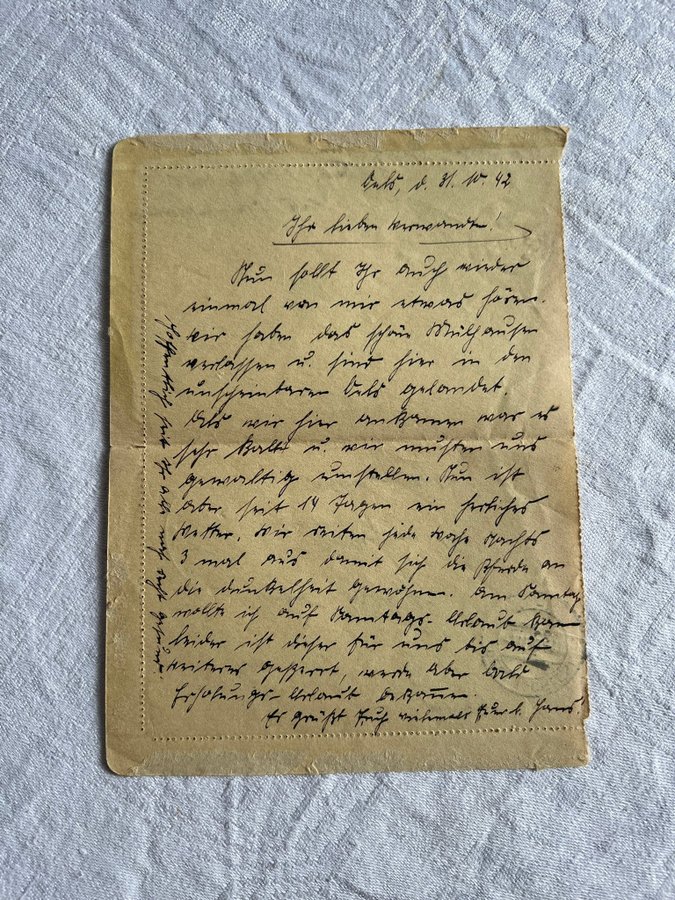 Oels, d. 31. 10. 42
Ihr lieben Verwandten!
Nun sollt Ihr auch wieder
einmal von mir etwas hören.
Wir haben das schöne Mülhausen
verlassen u. sind hier in den
unscheinbaren Oels gelandet.
Als wir hier ankamen war es
sehr kalt u. wir musten uns
gewaltig umstellen. Nun ist
aber seit 14 Tagen ein herliches
Wetter. Wir reiten jede Woche Nachts
3 mal aus damit sich die Pferde an
die Dunkelheit gewöhnen. Am Samstag
wollte ich auf Samtags-Urlaub
leider ist dieser für uns bis auf
weiteres gesperrt, werde aber bald
Erholungs-Urlaub bekommen.
Es grüßt Euch vielmals Euer l. Hans
Hoffentlich seit Ihr alle noch recht gesund